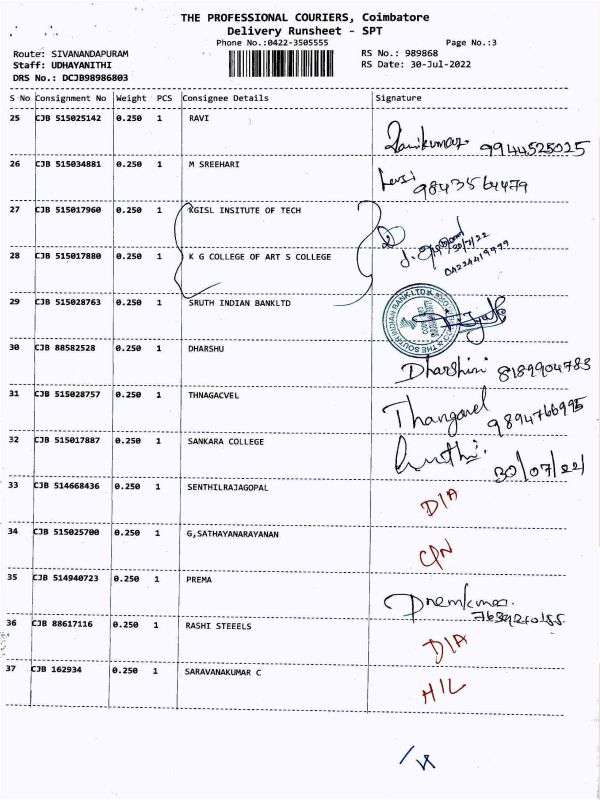 THE PROFESSIONAL COURIERS, Coimbatore
Delivery Runsheet - SPT
Phone No.:0422-3505555 Page No.:3
Route: SIVANANDAPURAM RS No.: 989868
Staff: UDHAYANITHI RS Date: 30-Jul-2022
DRS No.: DCJB98986803
S No Consignment No Weight PCS Consignee Details Signature
25 CJB 515025142 0.250 1 RAVI
Ravikumar 9944525025
26 CJB 515034881 0.250 1 M SREEHARI
9843564479
27 CJB 515017960 0.250 1 KGISL INSITUTE OF TECH
30/7/22
28 CJB 515017880 0.250 1 K G COLLEGE OF ART S COLLEGE
29 CJB 515028763 0.250 1 SRUTH INDIAN BANKLTD
THE SOUTH INDIAN BANK LTD
30 CJB 88582528 0.250 1 DHARSHU
Dharshini 8189904783
31 CJB 515028757 0.250 1 THNAGACVEL
Thangavel 9894766995
32 CJB 515017887 0.250 1 SANKARA COLLEGE
30/07/22
33 CJB 514668436 0.250 1 SENTHILRAJAGOPAL
D/A
34 CJB 515025700 0.250 1 G,SATHAYANARAYANAN
CPN
35 CJB 514940723 0.250 1 PREMA
Premkumar.
36 CJB 88617116 0.250 1 RASHI STEEELS
D/A
37 CJB 162934 0.250 1 SARAVANAKUMAR C
H/L